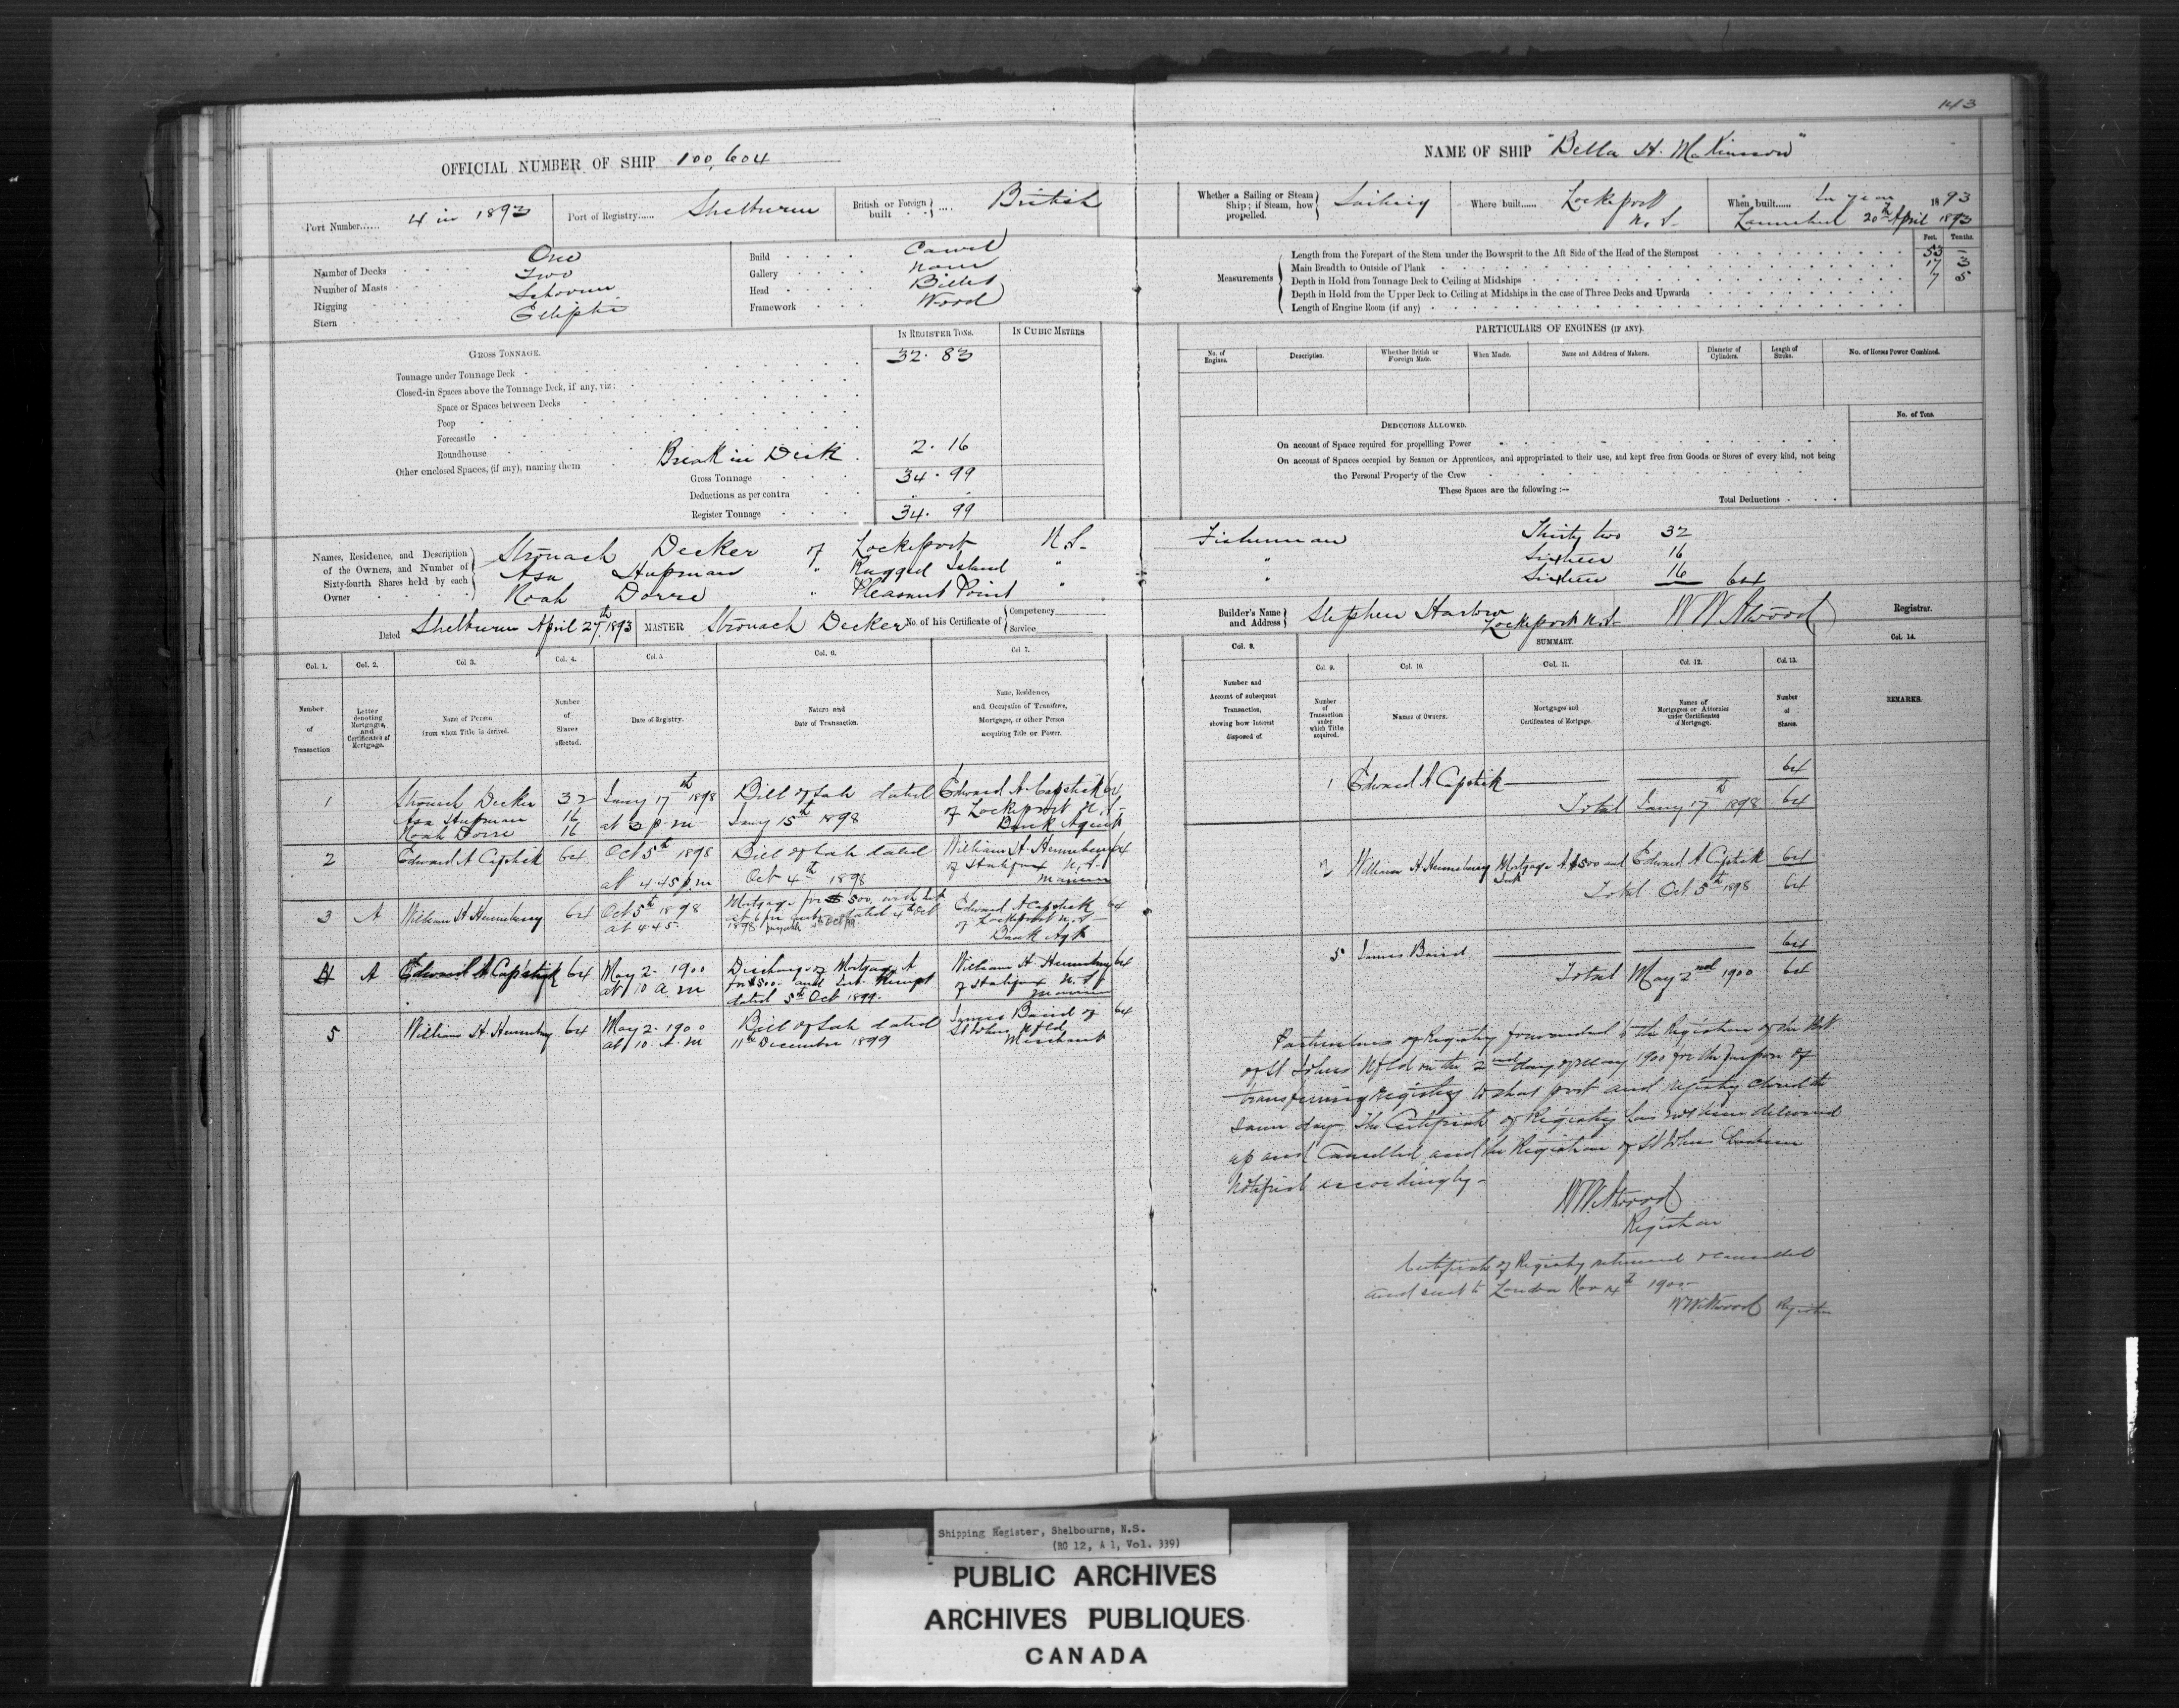 143
OFFICIAL NUMBER OF SHIP 100,604
NAME OF SHIP "Bella H. McKinnon"
Port Number...... 4 in 1893
Port of Registry...... Shelburne
British or Foreign built .... British
Whether a Sailing or Steam Ship; if Steam, how propelled. Sailing
Where built...... Lockeport N.S.
When built...... In year 1893
Launched 20th April 1893
Number of Decks One
Number of Masts Two
Rigging Schooner
Stern Elliptic
Build Carvel
Gallery None
Head Billet
Framework Wood
Measurements
Feet. Tenths.
Length from the Forepart of the Stem under the Bowsprit to the Aft Side of the Head of the Sternpost 53 –
Main Breadth to Outside of Plank 17 3
Depth in Hold from Tonnage Deck to Ceiling at Midships 7 5
Depth in Hold from the Upper Deck to Ceiling at Midships in the case of Three Decks and Upwards
Length of Engine Room (if any)
GROSS TONNAGE.
IN REGISTER TONS.
IN CUBIC METRES
Tonnage under Tonnage Deck 32.83
Closed-in Spaces above the Tonnage Deck, if any, viz:
Space or Spaces between Decks
Poop
Forecastle
Roundhouse
Other enclosed Spaces, (if any), naming them Break in Deck 2.16
Gross Tonnage 34.99
Deductions as per contra
Register Tonnage 34.99
PARTICULARS OF ENGINES (IF ANY).
No. of Engines.
Description.
Whether British or Foreign Made.
When Made.
Name and Address of Makers.
Diameter of Cylinders.
Length of Stroke.
No. of Horses Power Combined.
DEDUCTIONS ALLOWED.
No. of Tons.
On account of Space required for propelling Power
On account of Spaces occupied by Seamen or Apprentices, and appropriated to their use, and kept free from Goods or Stores of every kind, not being
the Personal Property of the Crew
These Spaces are the following:—
Total Deductions
Names, Residence, and Description of the Owners, and Number of Sixty-fourth Shares held by each Owner
Stronach Decker of Lockeport N.S. Fisherman Thirty two 32
Asa Hupman " Ragged Island " " Sixteen 16
Noah Dorre " Pleasant Point " " Sixteen 16 64
Dated Shelburne April 27th 1893
MASTER Stronach Decker
No. of his Certificate of Competency Service
Builder's Name and Address Stephen Harlow Lockeport N.S.
W W Atwood Registrar.
Col. 1.
Col. 2.
Col 3.
Col. 4.
Col. 5.
Col. 6.
Col 7.
Col. 8.
SUMMARY.
Col. 9.
Col. 10.
Col. 11.
Col. 12.
Col. 13.
Col. 14.
Number of Transaction
Letter denoting Mortgages, and Certificates of Mortgage.
Name of Person from whom Title is derived.
Number of Shares affected.
Date of Registry.
Nature and Date of Transaction.
Name, Residence, and Occupation of Transferee, Mortgagee, or other Person acquiring Title or Power.
Number and Account of subsequent Transaction, showing how Interest disposed of.
Number of Transaction under which Title acquired.
Names of Owners.
Mortgages and Certificates of Mortgage.
Names of Mortgagees or Attornies under Certificates of Mortgage.
Number of Shares.
REMARKS.
1
Stronach Decker 32
Asa Hupman 16
Noah Dorre 16
Jany 17th 1898
at 3 p.m
Bill of Sale dated
Jany 15th 1898
Edward A. Capstick 64
of Lockeport N.S.
Bank Agent
2
Edward A Capstick 64
Oct 5th 1898
at 4.45 p.m
Bill of Sale dated
Oct 4th 1898
William H. Henneberry 64
of Halifax N.S.
Mariner
3 A
William H Henneberry 64
Oct 5th 1898
at 4.45
Mortgage for $500, with Int
at 6 per cent dated 4th Oct
1898 payable 5th Oct
Edward A Capstick 64
of Lockeport N.S.
Bank Agt
4 A
Edward A Capstick 64
May 2. 1900
at 10 a.m
Discharge of Mortgage A
for $500. and Int Receipt
dated 5th Oct 1899.
William H. Henneberry 64
of Halifax N.S.
Mariner
5
William H. Henneberry 64
May 2. 1900
at 10. A.M
Bill of Sale dated
11th December 1899
James Baird of 64
St Johns Nfld
Merchant
1 Edward A. Capstick 64
Total Jany 17th 1898 64
2 William H Henneberry Mortgage A. $500 and Int Edward A. Capstick 64
Total Oct 5th 1898 64
5 James Baird 64
Total May 2nd 1900 64
Particulars of Registry forwarded to the Registrar of the Port
of St Johns Nfld on the 2nd day of May 1900 for the purpose of
transferring registry to that port and registry closed the
same day. The Certificate of Registry has not been delivered
up and Cancelled, and the Registrar of St Johns has been
Notified accordingly.
W W Atwood
Registrar
Certificate of Registry returned & cancelled
and sent to London Nov 14th 1900
W W Atwood Registrar
Shipping Register, Shelbourne, N.S.
(RG 12, A 1, Vol. 339)
PUBLIC ARCHIVES
ARCHIVES PUBLIQUES
CANADA